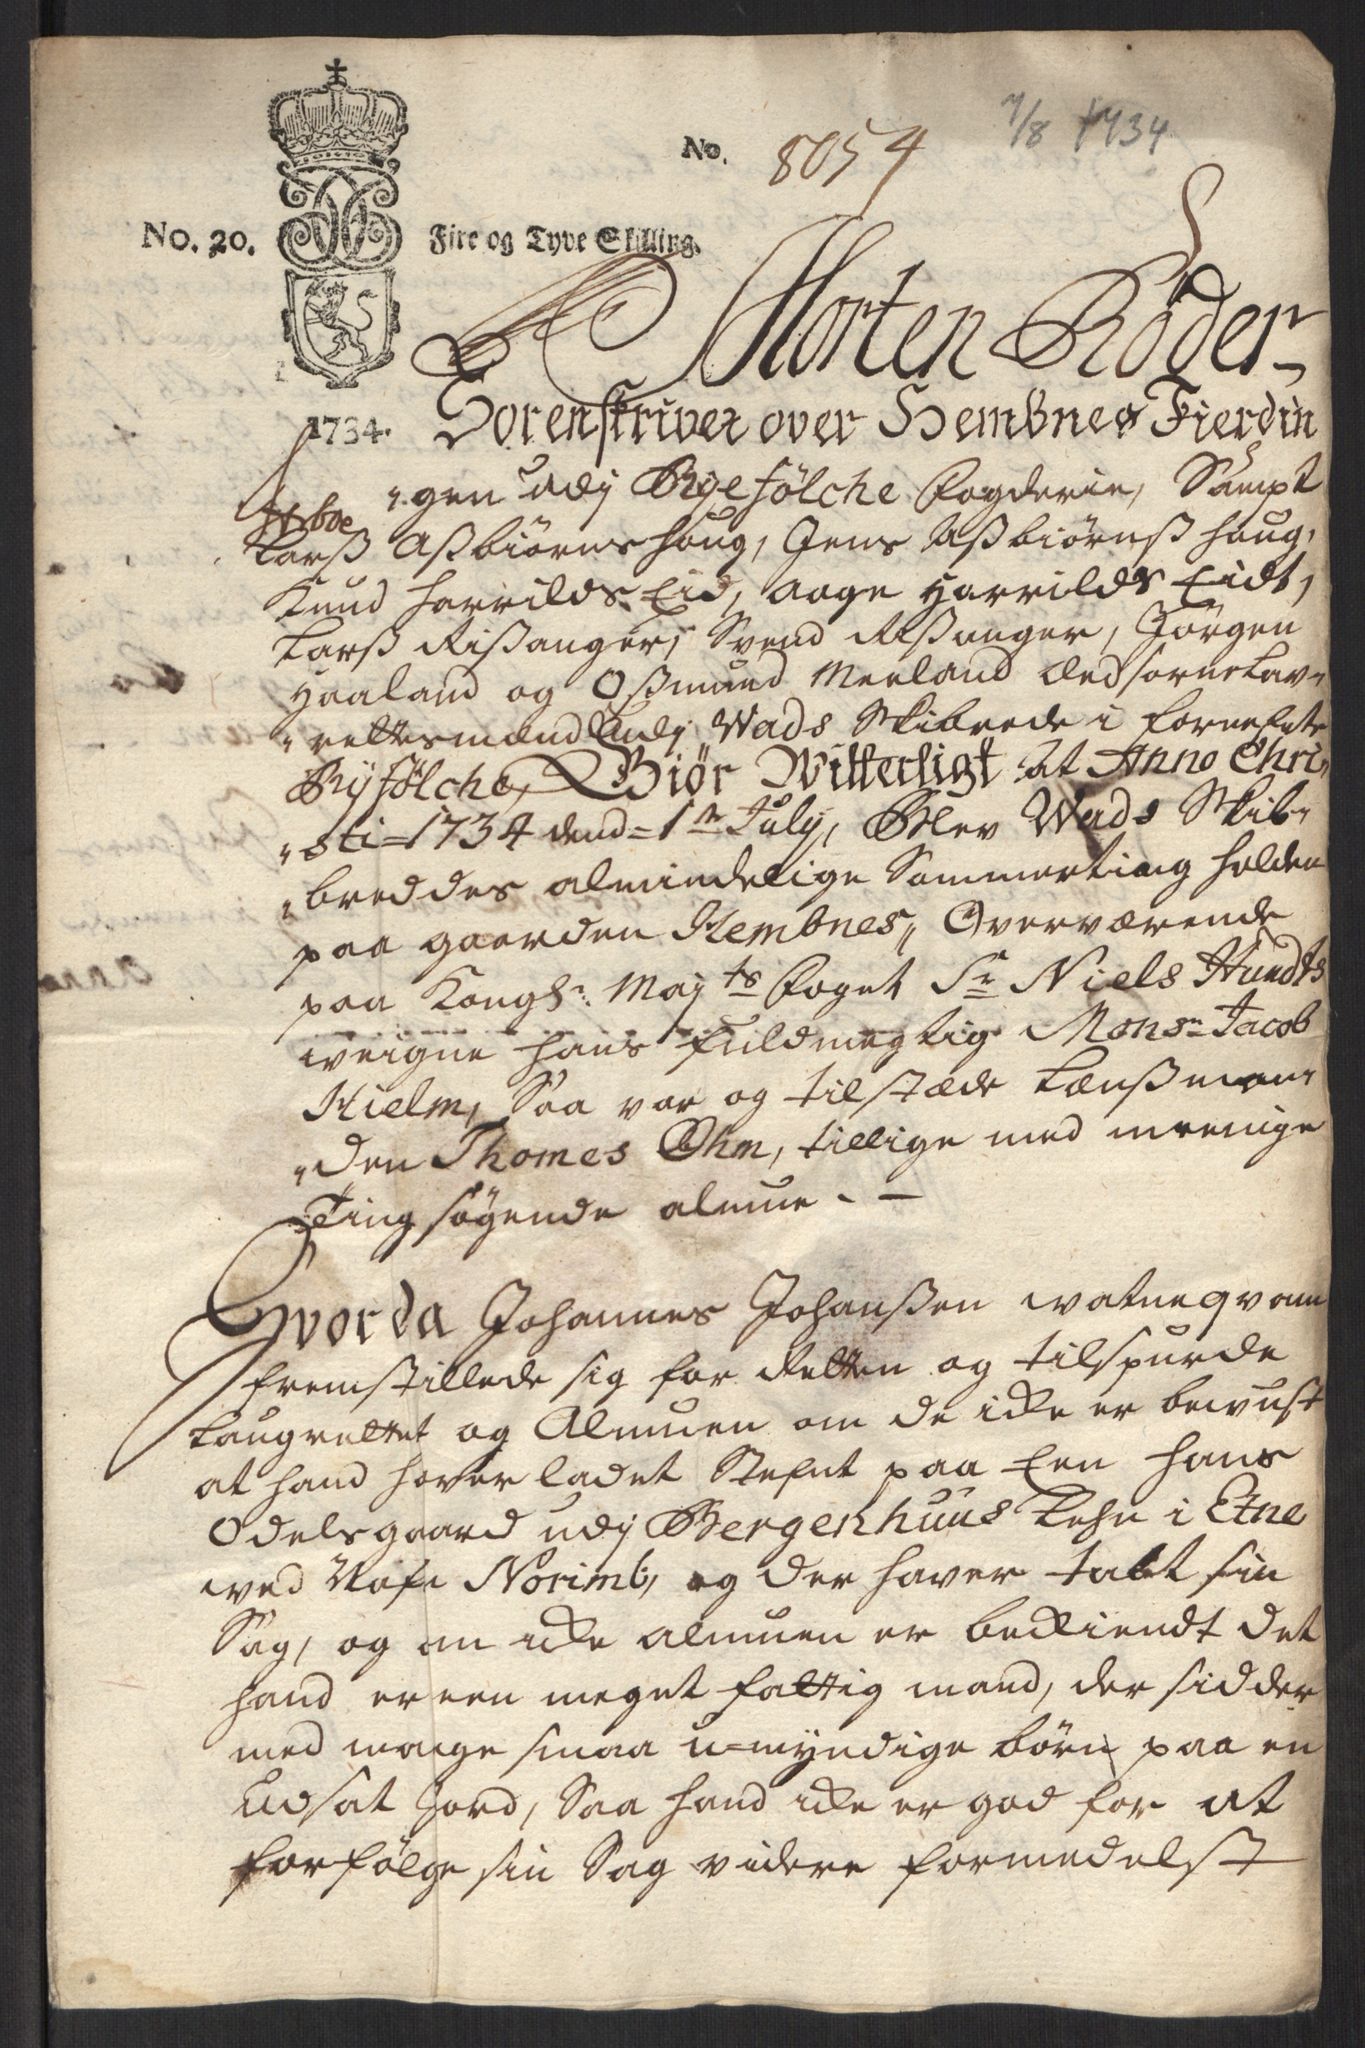 7/8 1734
No. 8054
No. 20. Fire og Tyve Skilling.
1734.
Morten Röder
Sorenskriver over Hembnes Fierdin
„gen udj Ryefølche Fogderie, Sampt
Larß Aßbiørnshoug, Jens Aßbiørnß houg,
Knud Harrilds Eid, Aage Harrilds Eidt,
Larß Rißanger, Svend Rißanger, Jørgen
Haaland og Oßmund Meeland Eedsorne Lav„
„rettesmænd udj Wads Skibrede i fornefnte
Ryfølche, Giør Witterligt at Anno Chri„
„sti=1734 dend=1te July, Blev Wads Skib„
„breddes almindelige Sommerting holden
paa gaarden Hembnes, Overværende
paa Kongl: Majts Foget Sr Niels Hundts
weigne hans fuldmegtig Monsr Jacob
Hielm, Saa var og tilstæde Lænßman„
„den Thomes Ohm, tillige med meenige
Ting søgende almue - -
Hvorda Johannes Johanßen watneqvam
fremstillede sig for Retten og tilspurde
Laugrettet og Almuen om de icke er bewust
at hand haver ladet Stefnt paa Een hans
Odelsgaard udj Bergenhuus Lehn i Etne
wed Nafn Norimb, og der haver tabt sin
Sag, og om icke almuen er beckiendt det
hand er een meget fattig mand, der sidder
med mange smaa u=myndige børn paa en
udsat Jord, Saa hand icke er god for at
forfølge sin Sag videre formedelst